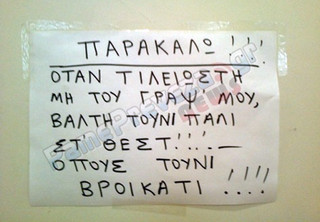 ΠΑΡΑΚΑΛΩ !!!
ΟΤΑΝ ΤΙΛΕΙΩΣΤΗ
ΜΗ ΤΟΥ ΓΡΑΨ' ΜΟΥ,
ΒΑΛΤΗ ΤΟΥΝΙ ΠΑΛΙ
ΣΤ' ΘΕΣΤ!!!-
ΟΠΟΥΣ ΤΟΥΝΙ
ΒΡΟΙΚΑΤΙ !!!!